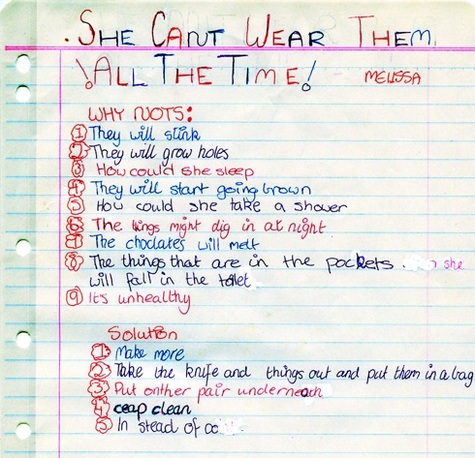 . SHE CANT WEAR THEM
! ALL THE TIME! MELISSA
WHY NOTS:
1 They will stink
2 They will grow holes
3 How could she sleep
4 They will start going brown
5 How could she take a shower
6 The things might dig in at night
7 The choclates will melt
8 The things that are in the pockets she
will fall in the toilet
9 It's unhealthy
Solution
1 Make more
2 Take the knife and things out and put them in a bag
3 Put onther pair underneath
4 ceap clean
5 In stead of